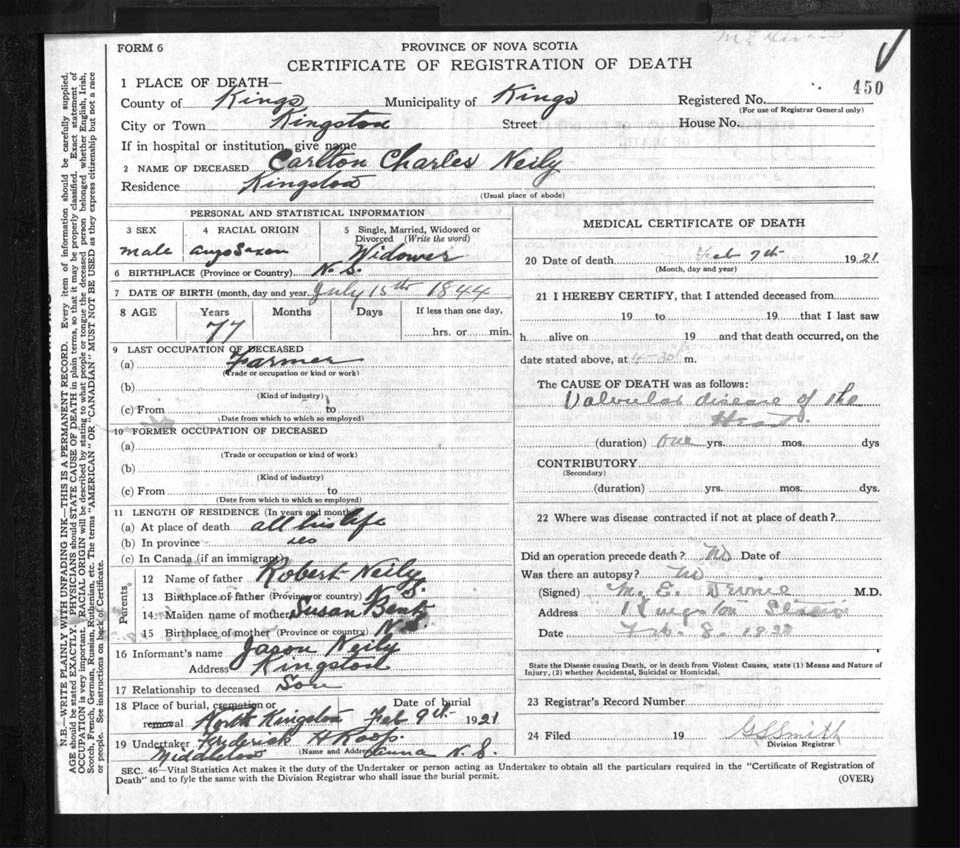 FORM 6
PROVINCE OF NOVA SCOTIA
CERTIFICATE OF REGISTRATION OF DEATH
450
1 PLACE OF DEATH—
County of Kings Municipality of Kings Registered No.
(For use of Registrar General only)
City or Town Kingston Street House No.
If in hospital or institution, give name
2 NAME OF DECEASED Carlton Charles Neily
Residence Kingston
(Usual place of abode)
PERSONAL AND STATISTICAL INFORMATION
3 SEX 4 RACIAL ORIGIN 5 Single, Married, Widowed or Divorced (Write the word)
male Widower
6 BIRTHPLACE (Province or Country) N. S.
7 DATE OF BIRTH (month, day and year) July 15th 1844
8 AGE Years Months Days If less than one day,
77 hrs. or min.
9 LAST OCCUPATION OF DECEASED
(a) Farmer
(Trade or occupation or kind or work)
(b)
(Kind of industry)
(c) From to
(Date from which to which so employed)
10 FORMER OCCUPATION OF DECEASED
(a)
(Trade or occupation or kind of work)
(b)
(Kind of industry)
(c) From to
(Date from which to which so employed)
11 LENGTH OF RESIDENCE (In years and months)
(a) At place of death all his life
(b) In province
(c) In Canada (if an immigrant)
Parents
12 Name of father Robert Neily
13 Birthplace of father (Province or country) N. S.
14 Maiden name of mother Susan Bent
15 Birthplace of mother (Province or country) N.S.
16 Informant's name Jason Neily
Address Kingston
17 Relationship to deceased Son
18 Place of burial, cremation or removal North Kingston Date of burial Feb 9th 1921
19 Undertaker Frederick H Roop
(Name and Address)
Middleton Anna N. S.
MEDICAL CERTIFICATE OF DEATH
20 Date of death Feb 7th 1921
(Month, day and year)
21 I HEREBY CERTIFY, that I attended deceased from
19 to 19 that I last saw
h alive on 19 and that death occurred, on the
date stated above, at 4-30 m.
The CAUSE OF DEATH was as follows:
Valvular disease of the
Heart.
(duration) one yrs. mos. dys
CONTRIBUTORY
(Secondary)
(duration) yrs. mos. dys.
22 Where was disease contracted if not at place of death?
Did an operation precede death? No Date of
Was there an autopsy? No
(Signed) M. E. M.D.
Address Kingston Station
Date Feb. 8. 192
State the Disease causing Death, or in death from Violent Causes, state (1) Means and Nature of
Injury, (2) whether Accidental, Suicidal or Homicidal.
23 Registrar's Record Number
24 Filed 19 Smith
Division Registrar
SEC. 46—Vital Statistics Act makes it the duty of the Undertaker or person acting as Undertaker to obtain all the particulars required in the "Certificate of Registration of
Death" and to fyle the same with the Division Registrar who shall issue the burial permit. (OVER)
N.B.—WRITE PLAINLY WITH UNFADING INK—THIS IS A PERMANENT RECORD. Every item of information should be carefully supplied.
AGE should be stated EXACTLY. PHYSICIANS should STATE CAUSE OF DEATH in plain terms, so that it may be properly classified. Exact statement of
OCCUPATION is very important. RACIAL ORIGIN will be described by stating to what people or tongue the deceased person belonged whether English, Irish,
Scotch, French, German, Russian, Ruthenian, etc. The terms "AMERICAN" OR "CANADIAN" MUST NOT BE USED as they express citizenship but not a race
or people. See instructions on back of Certificate.